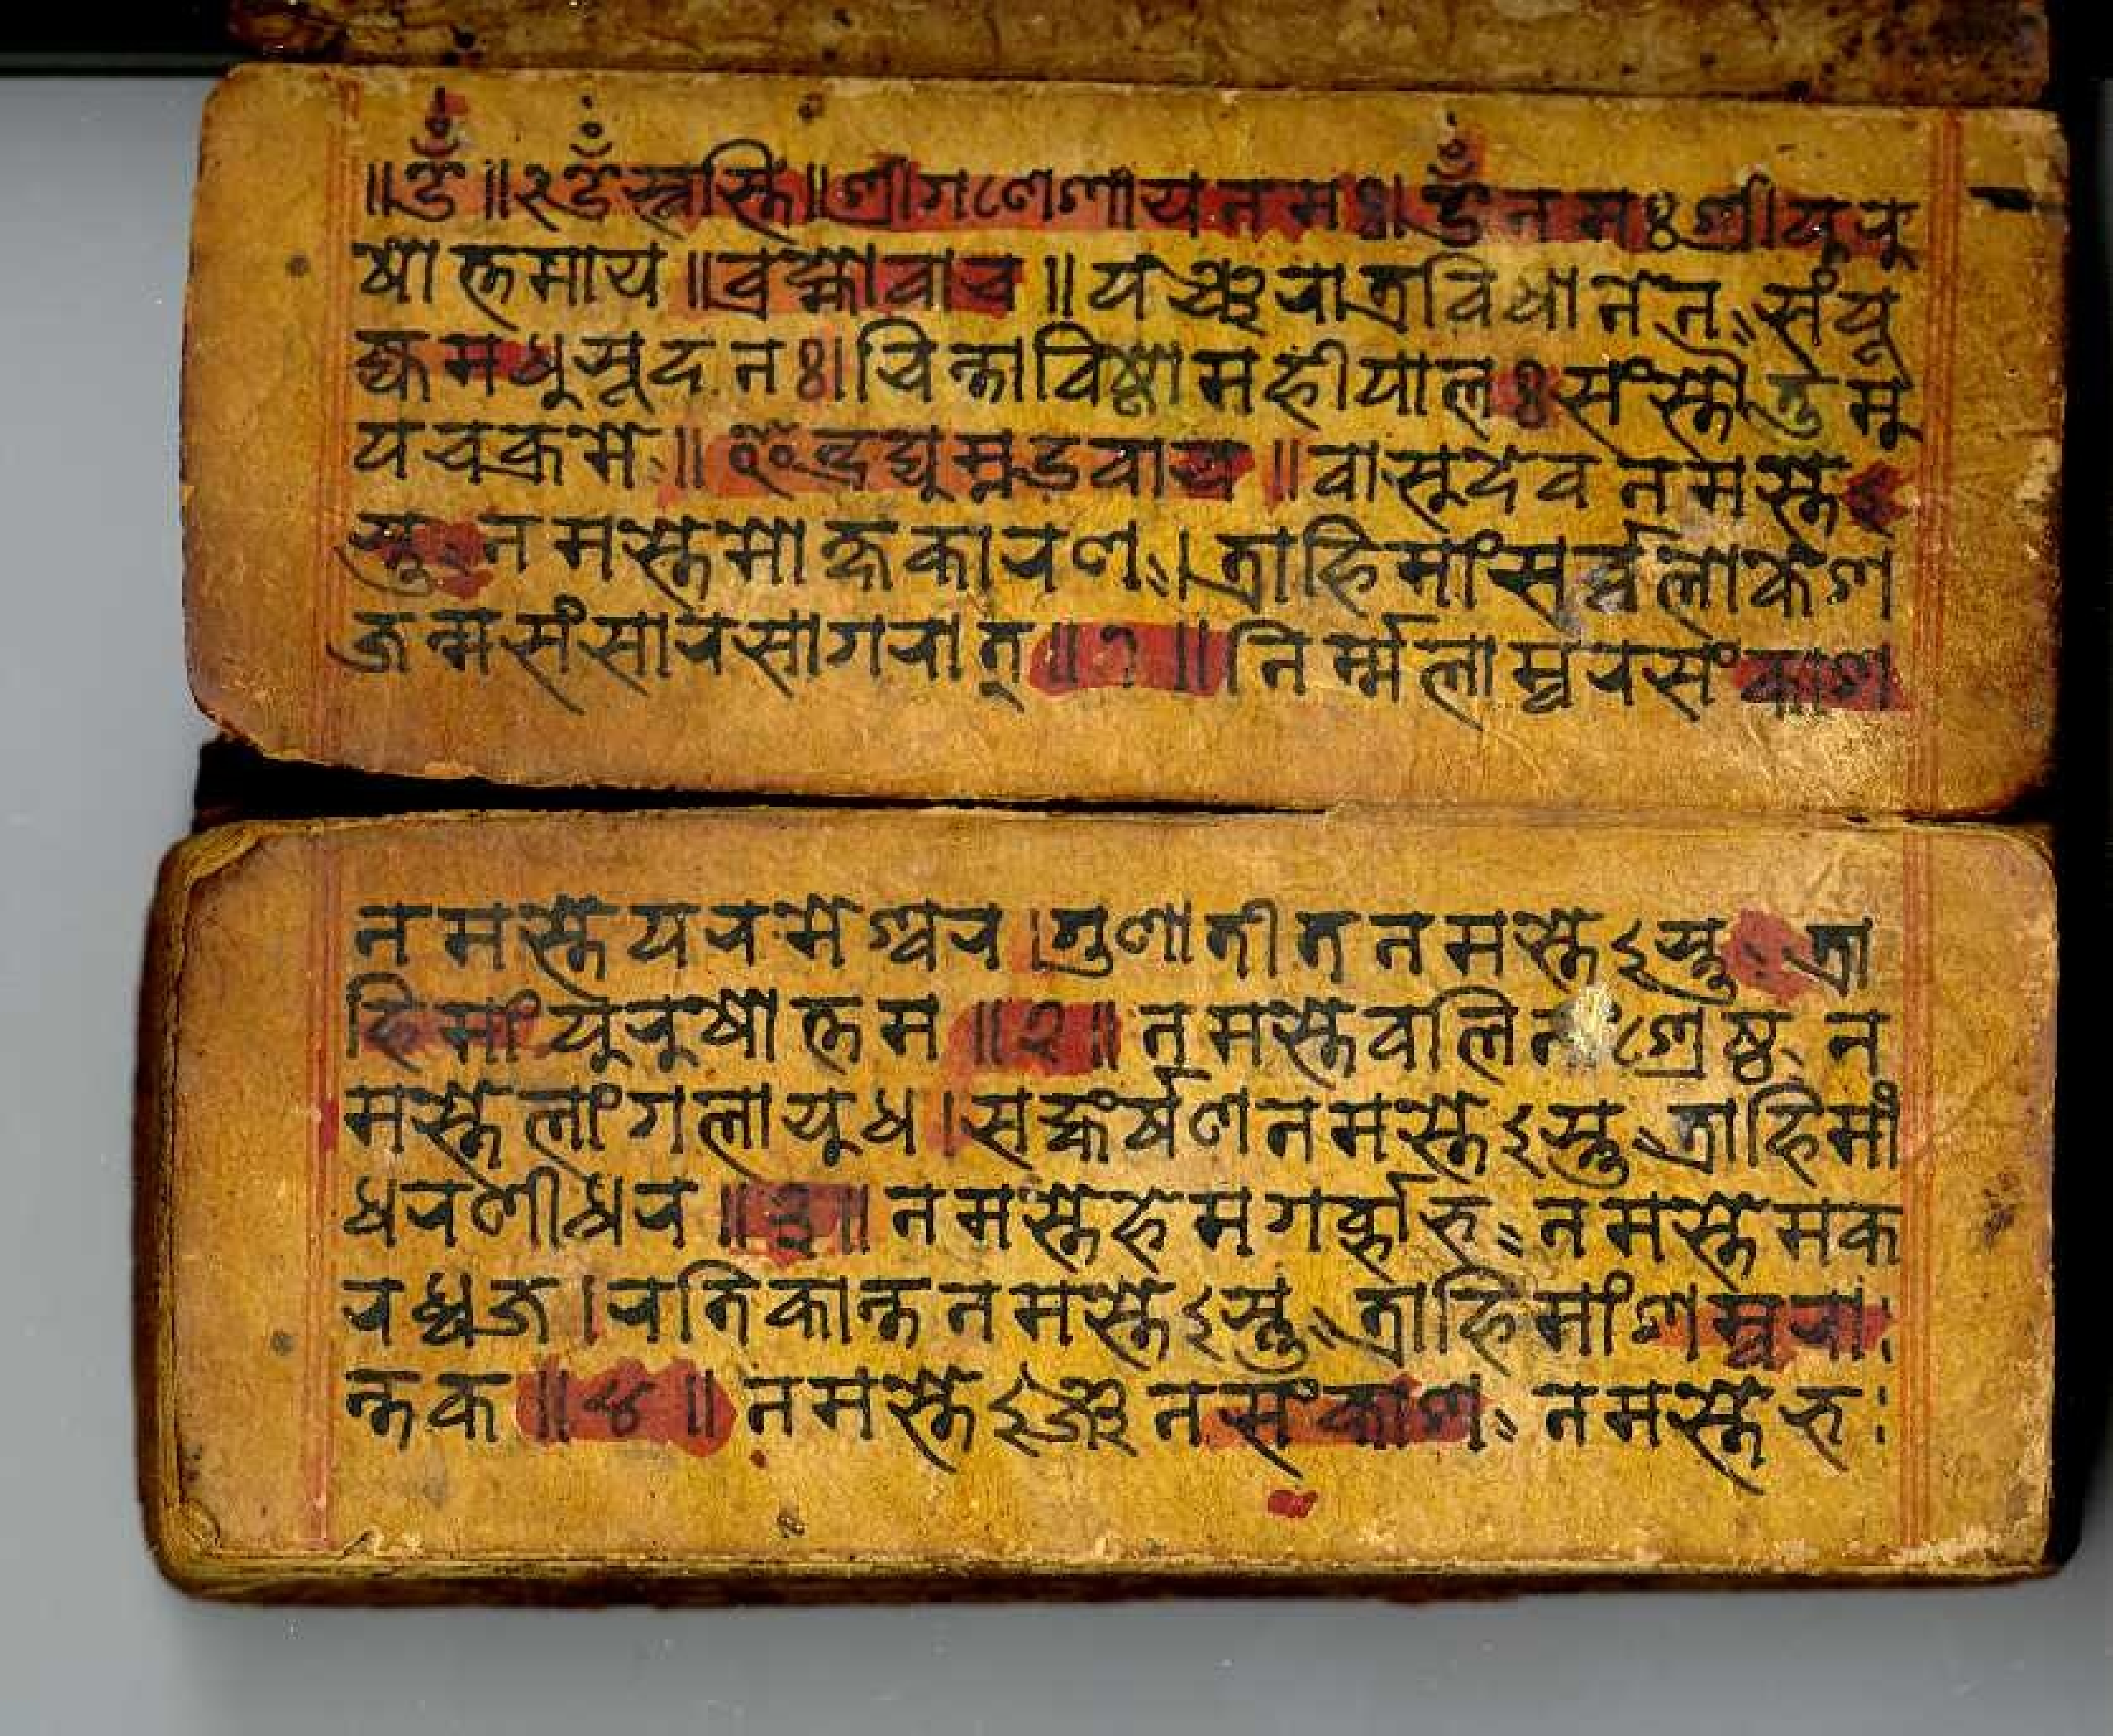 ॥ॐ॥२ॐस्वस्ति॥श्रीगणेशायनमः।ॐनमःश्रीपुरु
षोत्तमाय॥ब्रह्मोवाच॥पञ्चरात्रविधानेन॰संपू
ज्यमधुसूदनः।चिन्ताविष्टोमहीपालःसंस्तौतुमु
पचक्रमे॥इन्द्रद्युम्नउवाच॥वासुदेवनमस्तेऽ
स्तु॰नमस्तेमोक्षकारण॰।त्राहिमांसर्व्वलोकेश
जन्मसंसारसागरात्॥१॥निर्म्मलाम्वरसंकाश
नमस्तेपरमेश्वर।गुणातीतनमस्तेऽस्तु॰त्रा
हिमांपुरुषोत्तम॥२॥नमस्तेवलिनांश्रेष्ठ॰न
मस्तेलांगलायुध।सङ्कर्षणनमस्तेऽस्तु॰त्राहिमां
धरणीधर॥३॥नमस्तेहेमगर्ब्भारु॰नमस्तेमक
रध्वज।रतिकान्तनमस्तेऽस्तु॰त्राहिमांशम्वरा
न्तक॥४॥नमस्तेऽञ्जनसंकाश॰नमस्तेरु